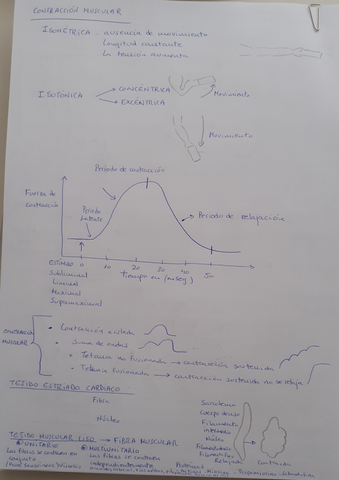 CONTRACCIÓN MUSCULAR
ISOMÉTRICA - ausencia de movimiento
Longitud constante
La tensión aumenta
ISOTÓNICA
CONCÉNTRICA
Movimiento
EXCÉNTRICA
Movimiento
Período de contracción
Fuerza de contracción
Período latente
Período de relajación
0 10 20 30 40 50
tiempo en (mseg)
ESTÍMULO
Subliminal
Liminal
Maximal
Supramaximal
CONTRACCIÓN MUSCULAR
• Contracción aislada
• Suma de ondas
• Tétano no fusionado → contracción sostenida
• Tétano fusionado → contracción sostenida no se relaja
TEJIDO ESTRIADO CARDÍACO
Fibra
Núcleo
Sarcolema
Cuerpo denso
Filamento intermedio
Núcleo
Relajada
Contraída
TEJIDO MUSCULAR LISO → FIBRA MUSCULAR
UNITARIO
Las fibras se contraen en conjunto
MULTIUNITARIO
Las fibras se contraen independientemente